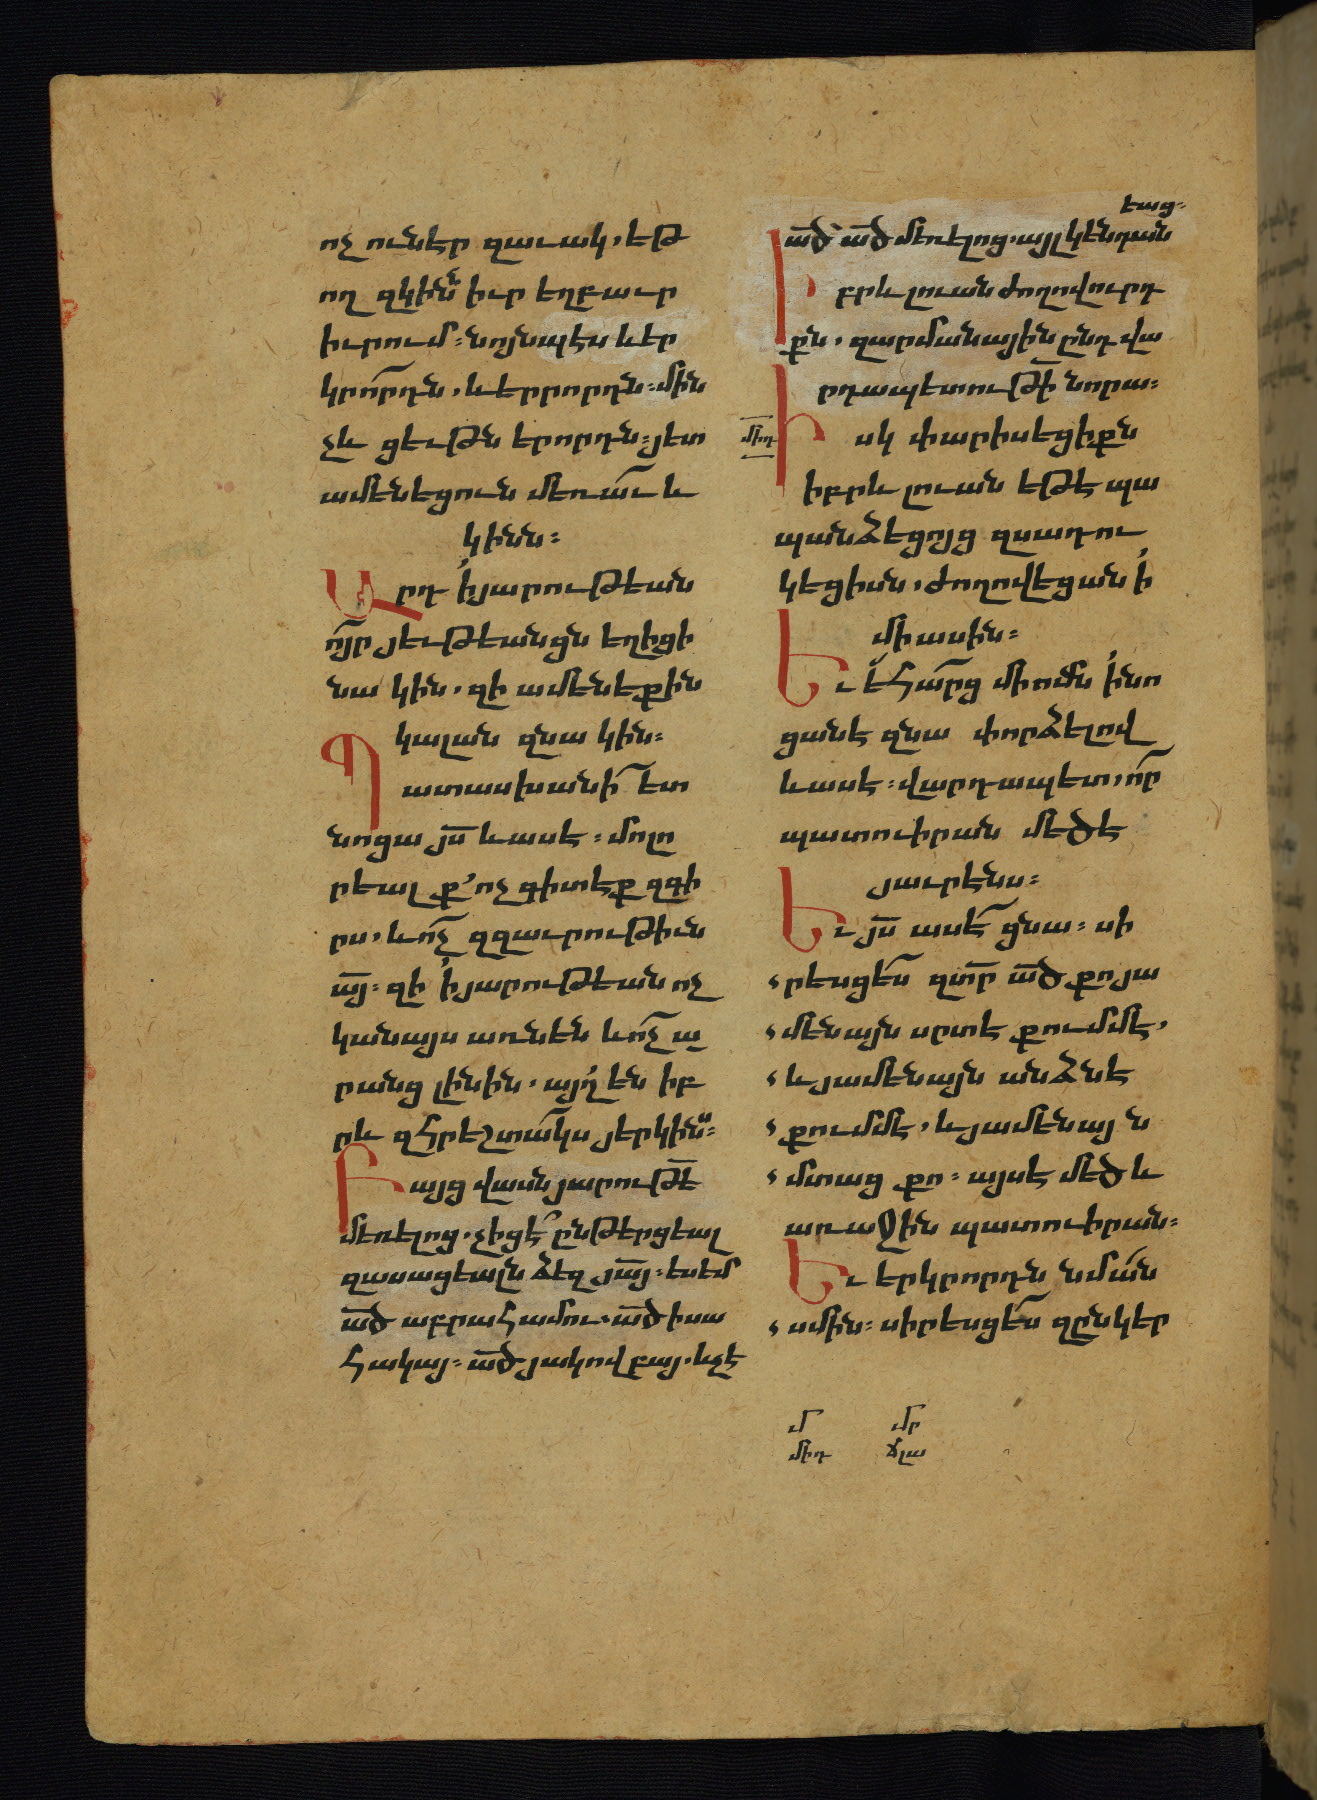 ոչ ունէր զաւակ, եթ
ող զկինն իւր եղբաւր
իւրում։ նոյնպէս և եր
կրորդն, և երրորդն։ մին
չև ցեւթն երորդն։ յետ
ամենեցուն մեռաւ և
կինն։
Արդ ՚ի յարութեան
ո՞յր յեւթեանցն եղիցի
նա կին, զի ամենեքին
կալան զնա կին։
Պատասխանի ետ
նոցա յս̅ և ասէ։ մոլո
րեալ ք՚ ոչ գիտէք զգի
րս, և ոչ զզաւրութիւն
ա̅յ։ զի ՚ի յարութեան ոչ
կանայս առնեն և ոչ ա
րանց լինին, այղ են իբ
րև զհրեշտակս յերկինս։
Բայց վասն յարութե̅
մեռելոց, չիցէ ընթերցեալ
զասացեալն ձեզ յա̅յ։ ես եմ
ա̅ծ աբրահամու, ա̅ծ իսա
հակայ։ ա̅ծ յակովբայ, և չէ
եաց։
ա̅ծ՝ ա̅ծ մեռելոց, այլ կենդան
Իբրև լուան ժողովուրդ
քն, զարմանային ընդ վա
րդապետութի̅ նորա։
միդ
Իսկ փարիսեցիքն
իբրև լուան եթէ պա
պանձեցոյց զսադու
կեցիսն, ժողովեցան ՚ի
միասին։
Եւ եհարց մի ոմն ՚ի նո
ցանէ զնա փորձելով
և ասէ։ վարդապետ, ո՞ր
պատուիրան մեծ է
յաւրէնս։
Եւ յս̅ ասէ ցնա։ սի
րեսցես զտր̅ ա̅ծ քո յա
մենայն սրտէ քումմէ,
և յամենայն անձնէ
քումմէ, և յամենայ ն
մտաց քո։ այս է մեծ և
առաջին պատուիրան։
Եւ երկրորդն նման
սմին։ սիրեսցես զընկեր
մ մր
միդ ճլա